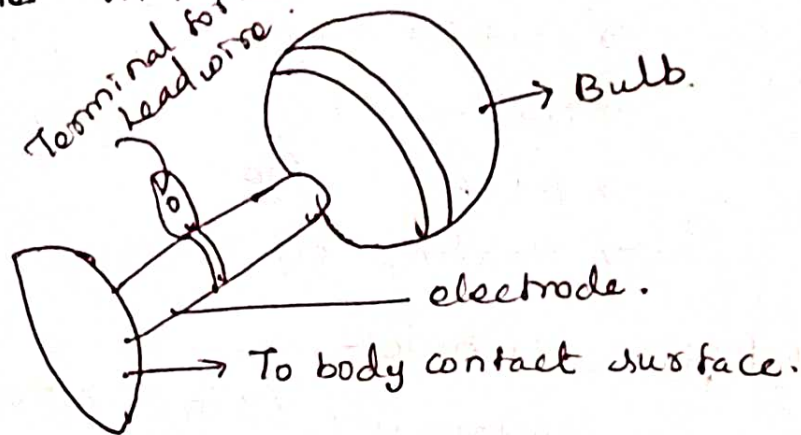 Terminal for
Leadwire.
Bulb.
electrode.
To body contact surface.